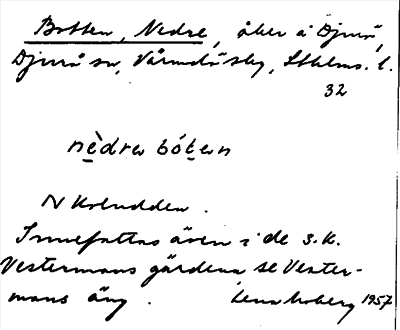 Botten, Nedre, åker å Djurö,
Djurö sn, Värmdö skg, Sthlms. l.
32
nèdra bóten
N Koludden.
Innefattas även i de s.k.
Vestermans gärdena se Vester-
mans äng.
Lena Moberg 1957